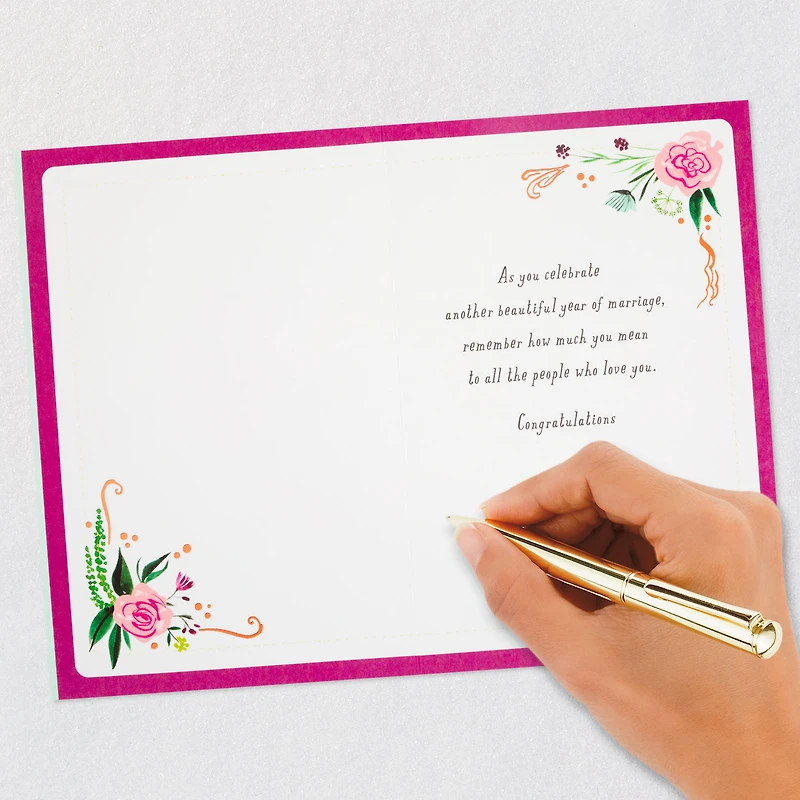 As you celebrate
another beautiful year of marriage,
remember how much you mean
to all the people who love you.
Congratulations